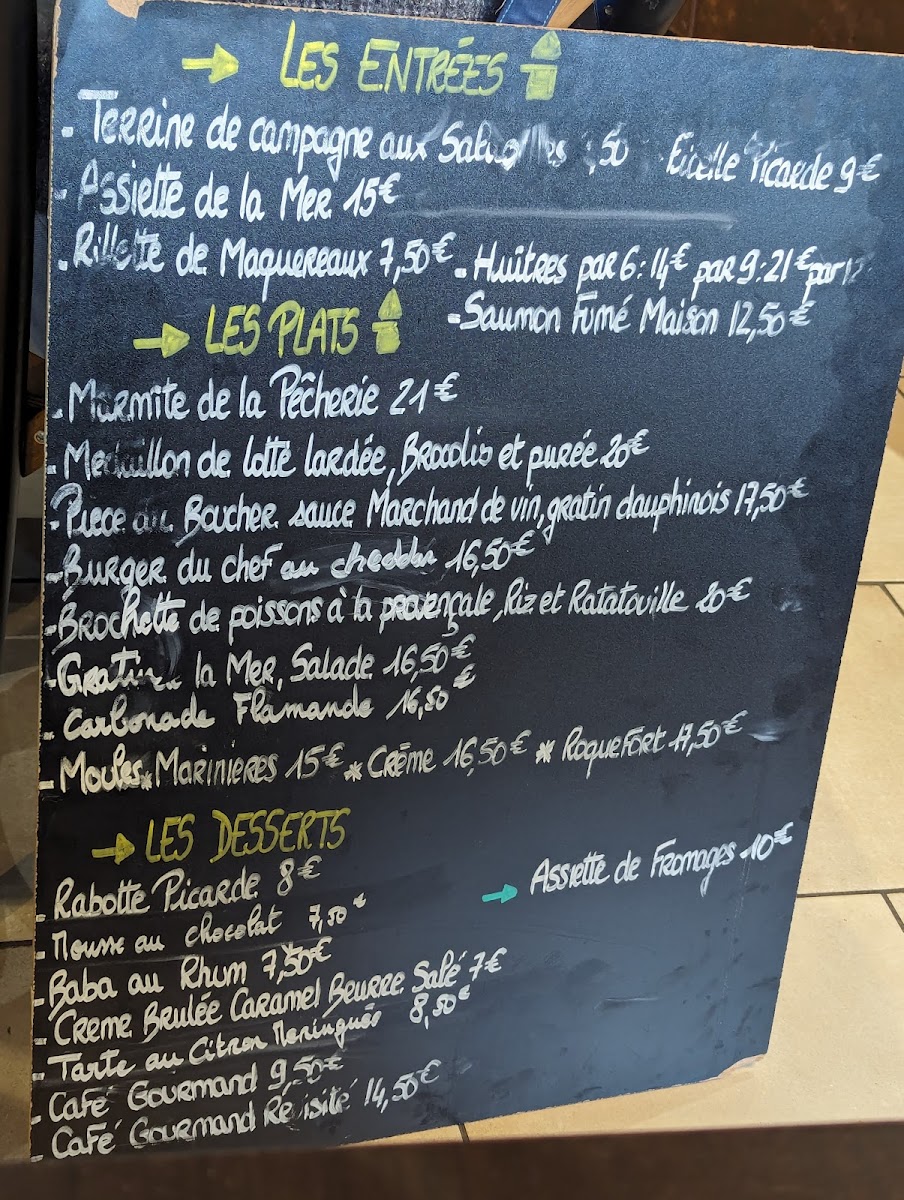 LES ENTRÉES
- Terrine de campagne aux ,50
. Ficelle Picarde 9€
- Assiette de la Mer 15€
. Rillette de Maquereaux 7,50€
- Huitres par 6 : 14€ par 9 : 21€ par 12
- Saumon Fumé Maison 12,50€
LES PLATS
. Marmite de la Pêcherie 21€
- Medaillon de lotte lardée, Brocolis et purée 20€
- Piece du Boucher sauce Marchand de vin, gratin dauphinois 17,50€
- Burger du chef au cheddar 16,50€
- Brochette de poissons à la provençale, Riz et Ratatouille 20€
- Gratin la Mer, Salade 16,50€
- Carbonade Flamande 16,50€
- Moules * Marinieres 15€ * Crème 16,50€ * Roquefort 17,50€
LES DESSERTS
- Rabotte Picarde 8€
Assiette de Fromages 10€
- Mousse au chocolat 7,50€
- Baba au Rhum 7,50€
- Creme Brulée Caramel Beurre Salé 7€
- Tarte au Citron Meringués 8,50€
- Café Gourmand 9,50€
- Café Gourmand Revisité 14,50€